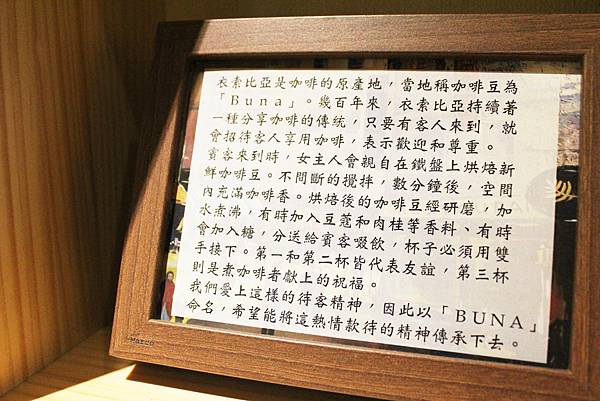 衣索比亞是咖啡的原產地，當地稱咖啡豆為
「Buna」。幾百年來，衣索比亞持續著
一種分享咖啡的傳統，只要有客人來到，就
會招待客人享用咖啡，表示歡迎和尊重。
賓客來到時，女主人會親自在鐵盤上烘焙新
鮮咖啡豆。不間斷的攪拌，數分鐘後，空間
內充滿咖啡香。烘焙後的咖啡豆經研磨，加
水煮沸，有時加入豆蔻和肉桂等香料、有時
會加入糖，分送給賓客啜飲，杯子必須用雙
手接下。第一和第二杯皆代表友誼，第三杯
則是煮咖啡者獻上的祝福。
我們愛上這樣的待客精神，因此以「BUNA」
命名，希望能將這熱情款待的精神傳承下去。
Marco